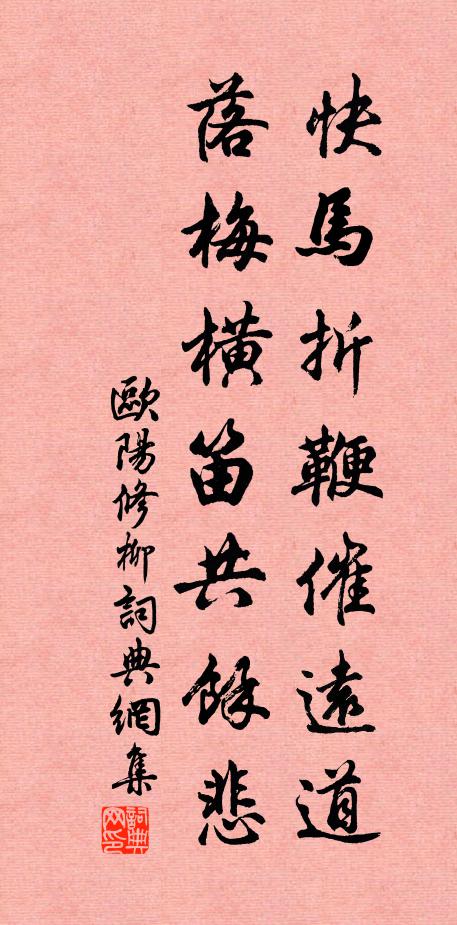 快馬折鞭催遠道
落梅橫笛共餘悲
歐陽修柳詞典網集
詞典網印